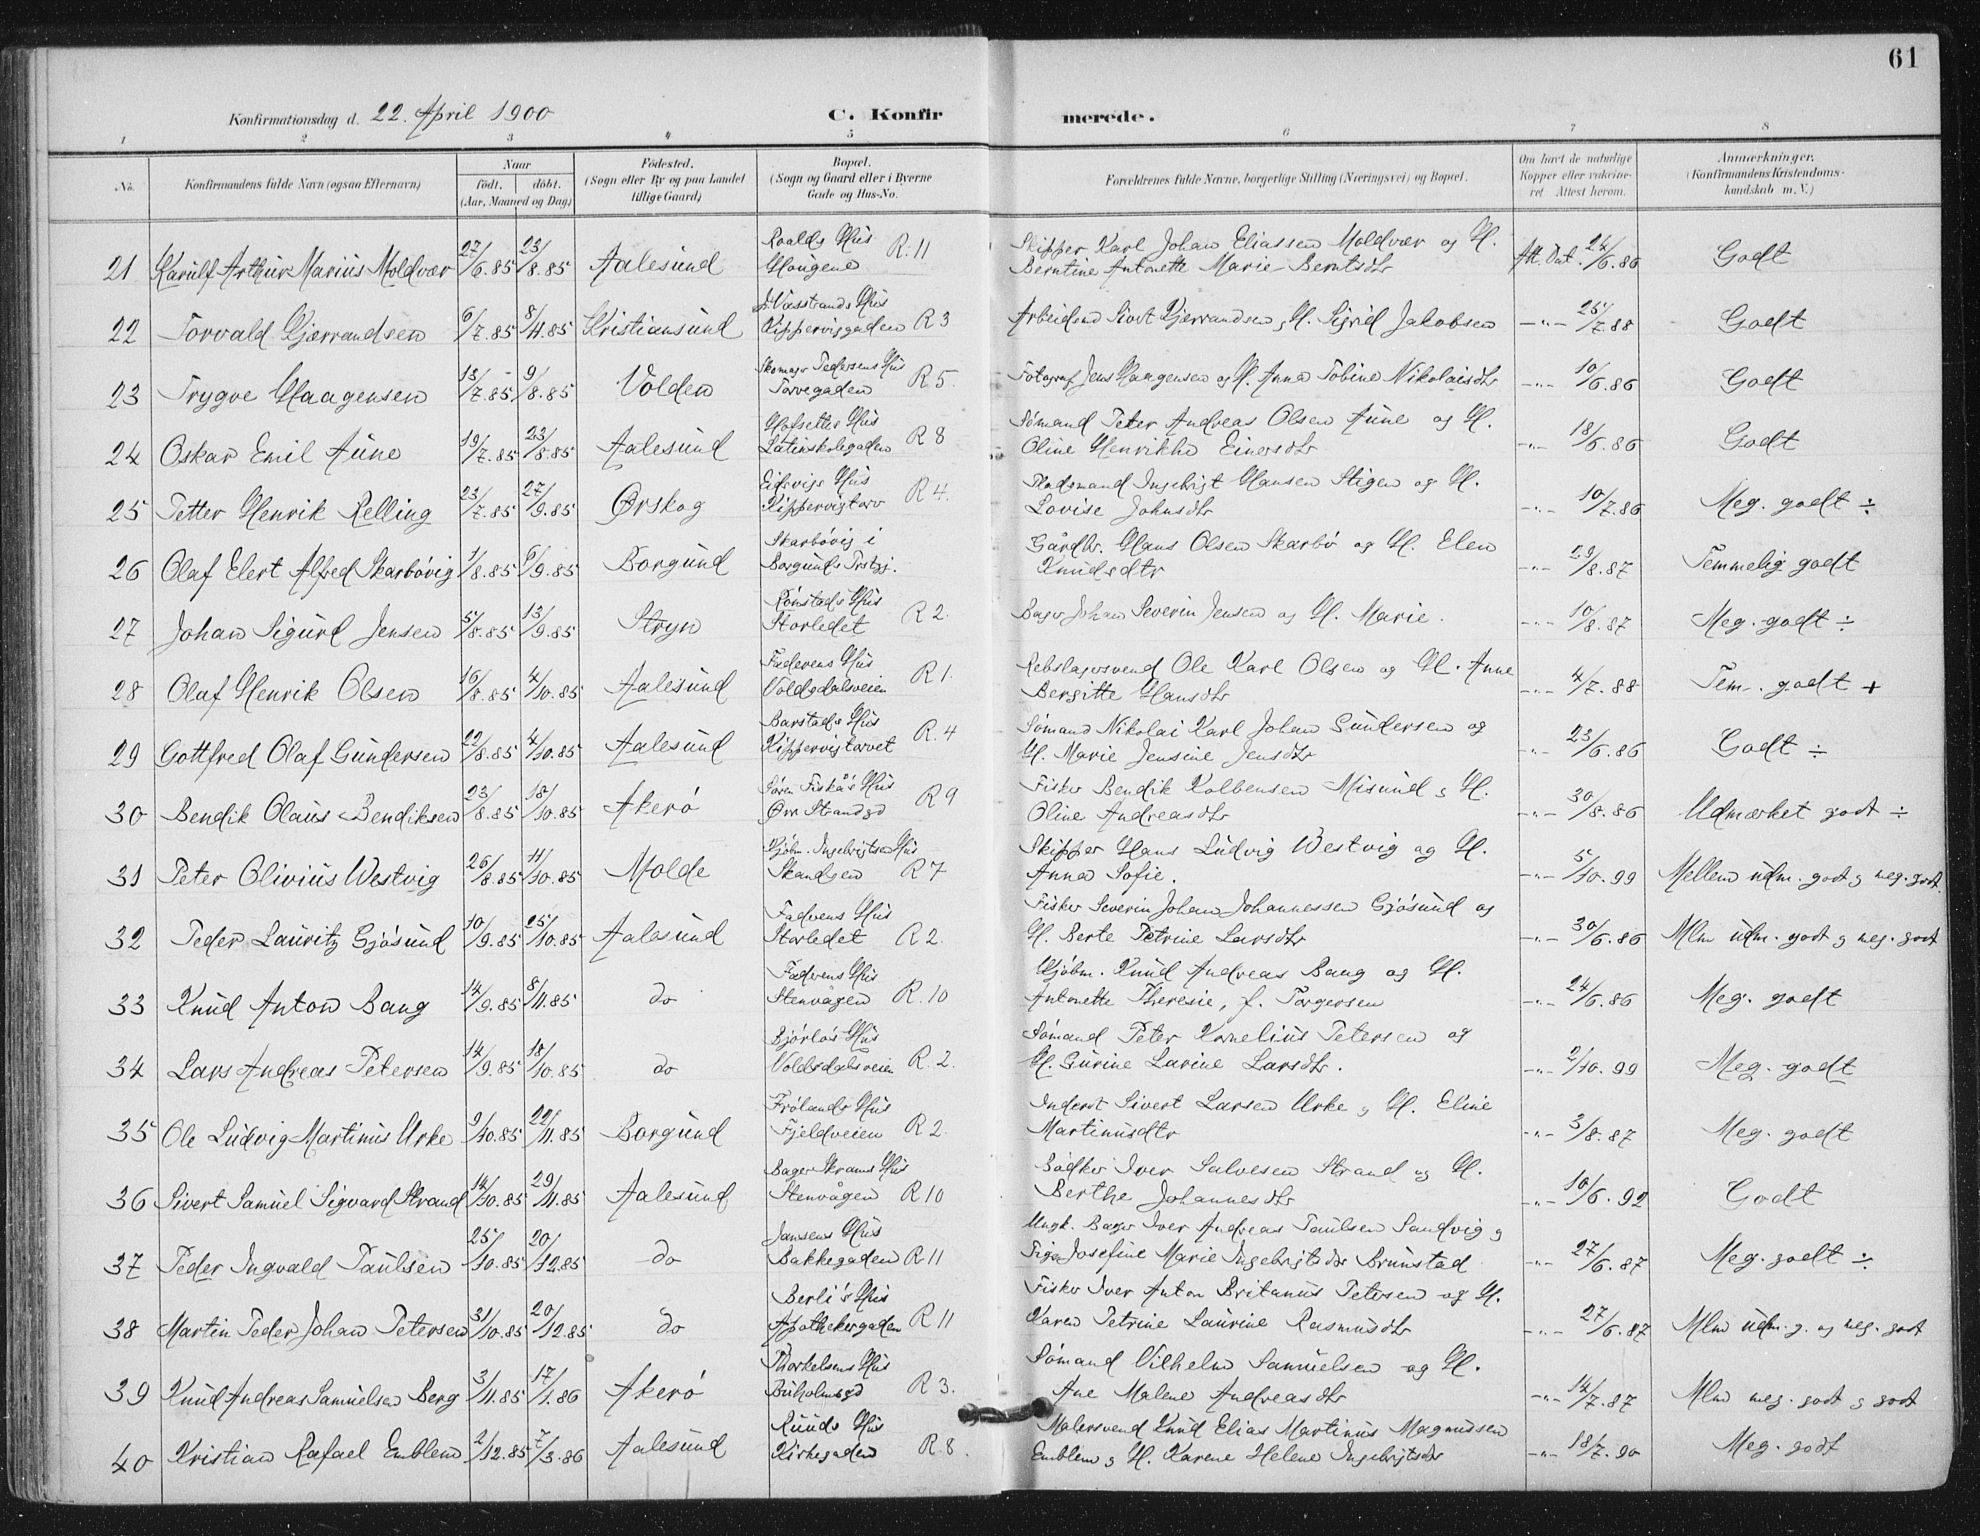 61
Konfirmationsdag d. 22. April 1900 C. Konfirmerede.
1 2 3 4 5 6 7 8
No. Konfirmandens fulde Navn (ogsaa Efternavn) Naar født. døbt. (Aar, Maaned og Dag) Fødested. (Sogn eller By og paa Landet tillige Gaard) Bopæl. (Sogn og Gaard eller i Byerne Gade og Hus-No. Forældrenes fulde Navne, borgerlige Stilling (Næringsvei) og Bopæl. Om havt de naturlige Kopper eller vakcineret Attest herom. Anmærkninger. (Konfirmandens Kristendomskundskab m. V.)
21 Karulf Arthur Marius Moldvær 27/6.85 23/8.85 Aalesund Roalds Hus Haugene R. 11 Skipper Karl Johan Eliassen Moldvær og H. Berntine Antonette Marie Berntsdtr Att. Dat. 24/6.86 Godt
22 Torvald Gjærrandsen 6/7.85 8/11.85 Kristiansund Kipperviggaden R 3 Arbeidsmd Sivert Gjærrandsen, H. Sigrid Jakobsen -"- 25/7.88 Godt
23 Trygve Haagensen 13/7.85 9/8.85 Volden Skomager Pedersens Hus Torvegaden R 5. Fotograf Jens Haagensen og H. Anna Tobine Nikolaisdtr -"- 10/6.86 Godt
24 Oskar Emil Aune 19/7.85 23/8.85 Aalesund Hofsetts Hus Latinskolegaden R 8 Sømand Peter Andreas Olsen Aune og H. Oline Henrikke Einersdtr -"- 18/6.86 Godt
25 Petter Henrik Relling 23/7.85 27/9.85 Ørskog Eidsvigs Hus Kippervigtorv R 4. Pladsmand Ingebrigt Hansen Stigen og H. Lovise Johnsdtr -"- 10/7.86 Meg. godt ÷
26 Olaf Elert Alfred Skarbøvig 1/8.85 6/9.85 Borgund Skarbøvig i Borgunds Prstgj. Gårdbr. Hans Olsen Skarbø og H. Elen Knudsdtr -"- 29/8.87 Temmelig godt
27 Johan Sigurd Jensen 5/8.85 13/9.85 Stryn Rønstads Hus Storledet R 2. Bager Johan Severin Jensen og H. Marie. -"- 10/8.87 Meg. godt ÷
28 Olaf Henrik Olsen 16/8.85 4/10.85 Aalesund Faderens Hus Voldsdalsveien R 1. Rebslagersvend Ole Karl Olsen og H. Anne Bergitte Hansdtr -"- 4/7.88 Tem. godt +
29 Gottfred Olaf Gundersen 22/8.85 4/10.85 Aalesund Barstads Hus Kippervigtorvet R. 4 Sømand Nikolai Karl Johan Gundersen og H. Marie Jensine Jensdtr -"- 23/6.86 Godt ÷
30 Bendik Olaus Bendiksen 23/8.85 18/10.85 Akerø Søren Fiskås Hus Øvr Strandgd R 9 Fisker Bendik Kolbensen Misund, H. Oline Andreasdtr -"- 30/8.86 Udmærket godt ÷
31 Peter Olivius Westvig 26/8.85 11/10.85 Molde Kjøbm. Ingebrigtsens Hus Skandsen R 7 Skipper Hans Ludvig Westvig og H. Anna Sofie. -"- 5/10.99 Mellem udm. godt og meg. godt.
32 Peder Lauritz Gjøsund 10/9.85 25/10.85 Aalesund Faderens Hus Storledet R 2. Fisker Severin Johan Johannessen Gjøsund og H. Berte Petrine Larsdtr -"- 30/6.86 Mlm udm. godt og meg. godt
33 Knud Anton Bang 14/9.85 8/11.85 do Faderens Hus Stenvågen R. 10 Kjøbm. Knud Andreas Bang og H. Antonette Theresie, f. Torgersen -"- 24/6.86 Meg. godt
34 Lars Andreas Petersen 14/9.85 18/10.85 do Bjørløs Hus Voldsdalsveien R. 2. Sømand Peter Kornelius Petersen og H. Gurine Larine Larsdtr. -"- 2/10.99 Meg. godt
35 Ole Ludvig Martinus Urke 9/10.85 22/11.85 Borgund Frølands Hus Fjeldveien R 2. Inderst Sivert Larsen Urke, H. Eline Martinusdtr -"- 3/8.87 Meg. godt
36 Sivert Samuel Sigvard Strand 14/10.85 29/11.85 Aalesund Bager Skrams Hus Stenvågen R 10 Bødker Iver Salvesen Strand og H. Berthe Johannesdtr -"- 10/6.92 Godt
37 Peder Ingvald Paulsen 25/10.85 20/12.85 do Jansens Hus Bakkegaden R 11 Ungk. Bager Iver Andreas Paulsen Sandvig, Pige Josefine Marie Ingebrigtsdtr Brunstad -"- 27/6.87 Meg. godt ÷
38 Martin Peder Johan Petersen 31/10.85 20/12.85 do Berli's Hus Apothekergaden R 11 Fisker Iver Anton Britanus Petersen og H. Karen Petrine Laurine Rasmusdtr -"- 27/6.87 Mlm udm. g. og meg. godt
39 Knud Andreas Samuelsen Berg 3/11.85 17/1.86 Akerø Thorkelsens Hus Buholmsgd R 3. Sømand Vilhelm Samuelsen og H. Ane Malene Andreasdtr -"- 14/7.87 Mlm meg. godt og godt
40 Kristian Rafael Emblem 2/12.85 7/3.86 Aalesund Ruuds Hus Kirkegaden R. 8. Malersvend Knud Elias Martinus Magnussen Emblem, H. Karene Helene Ingebrigtsdtr -"- 18/7.90 Meg. godt